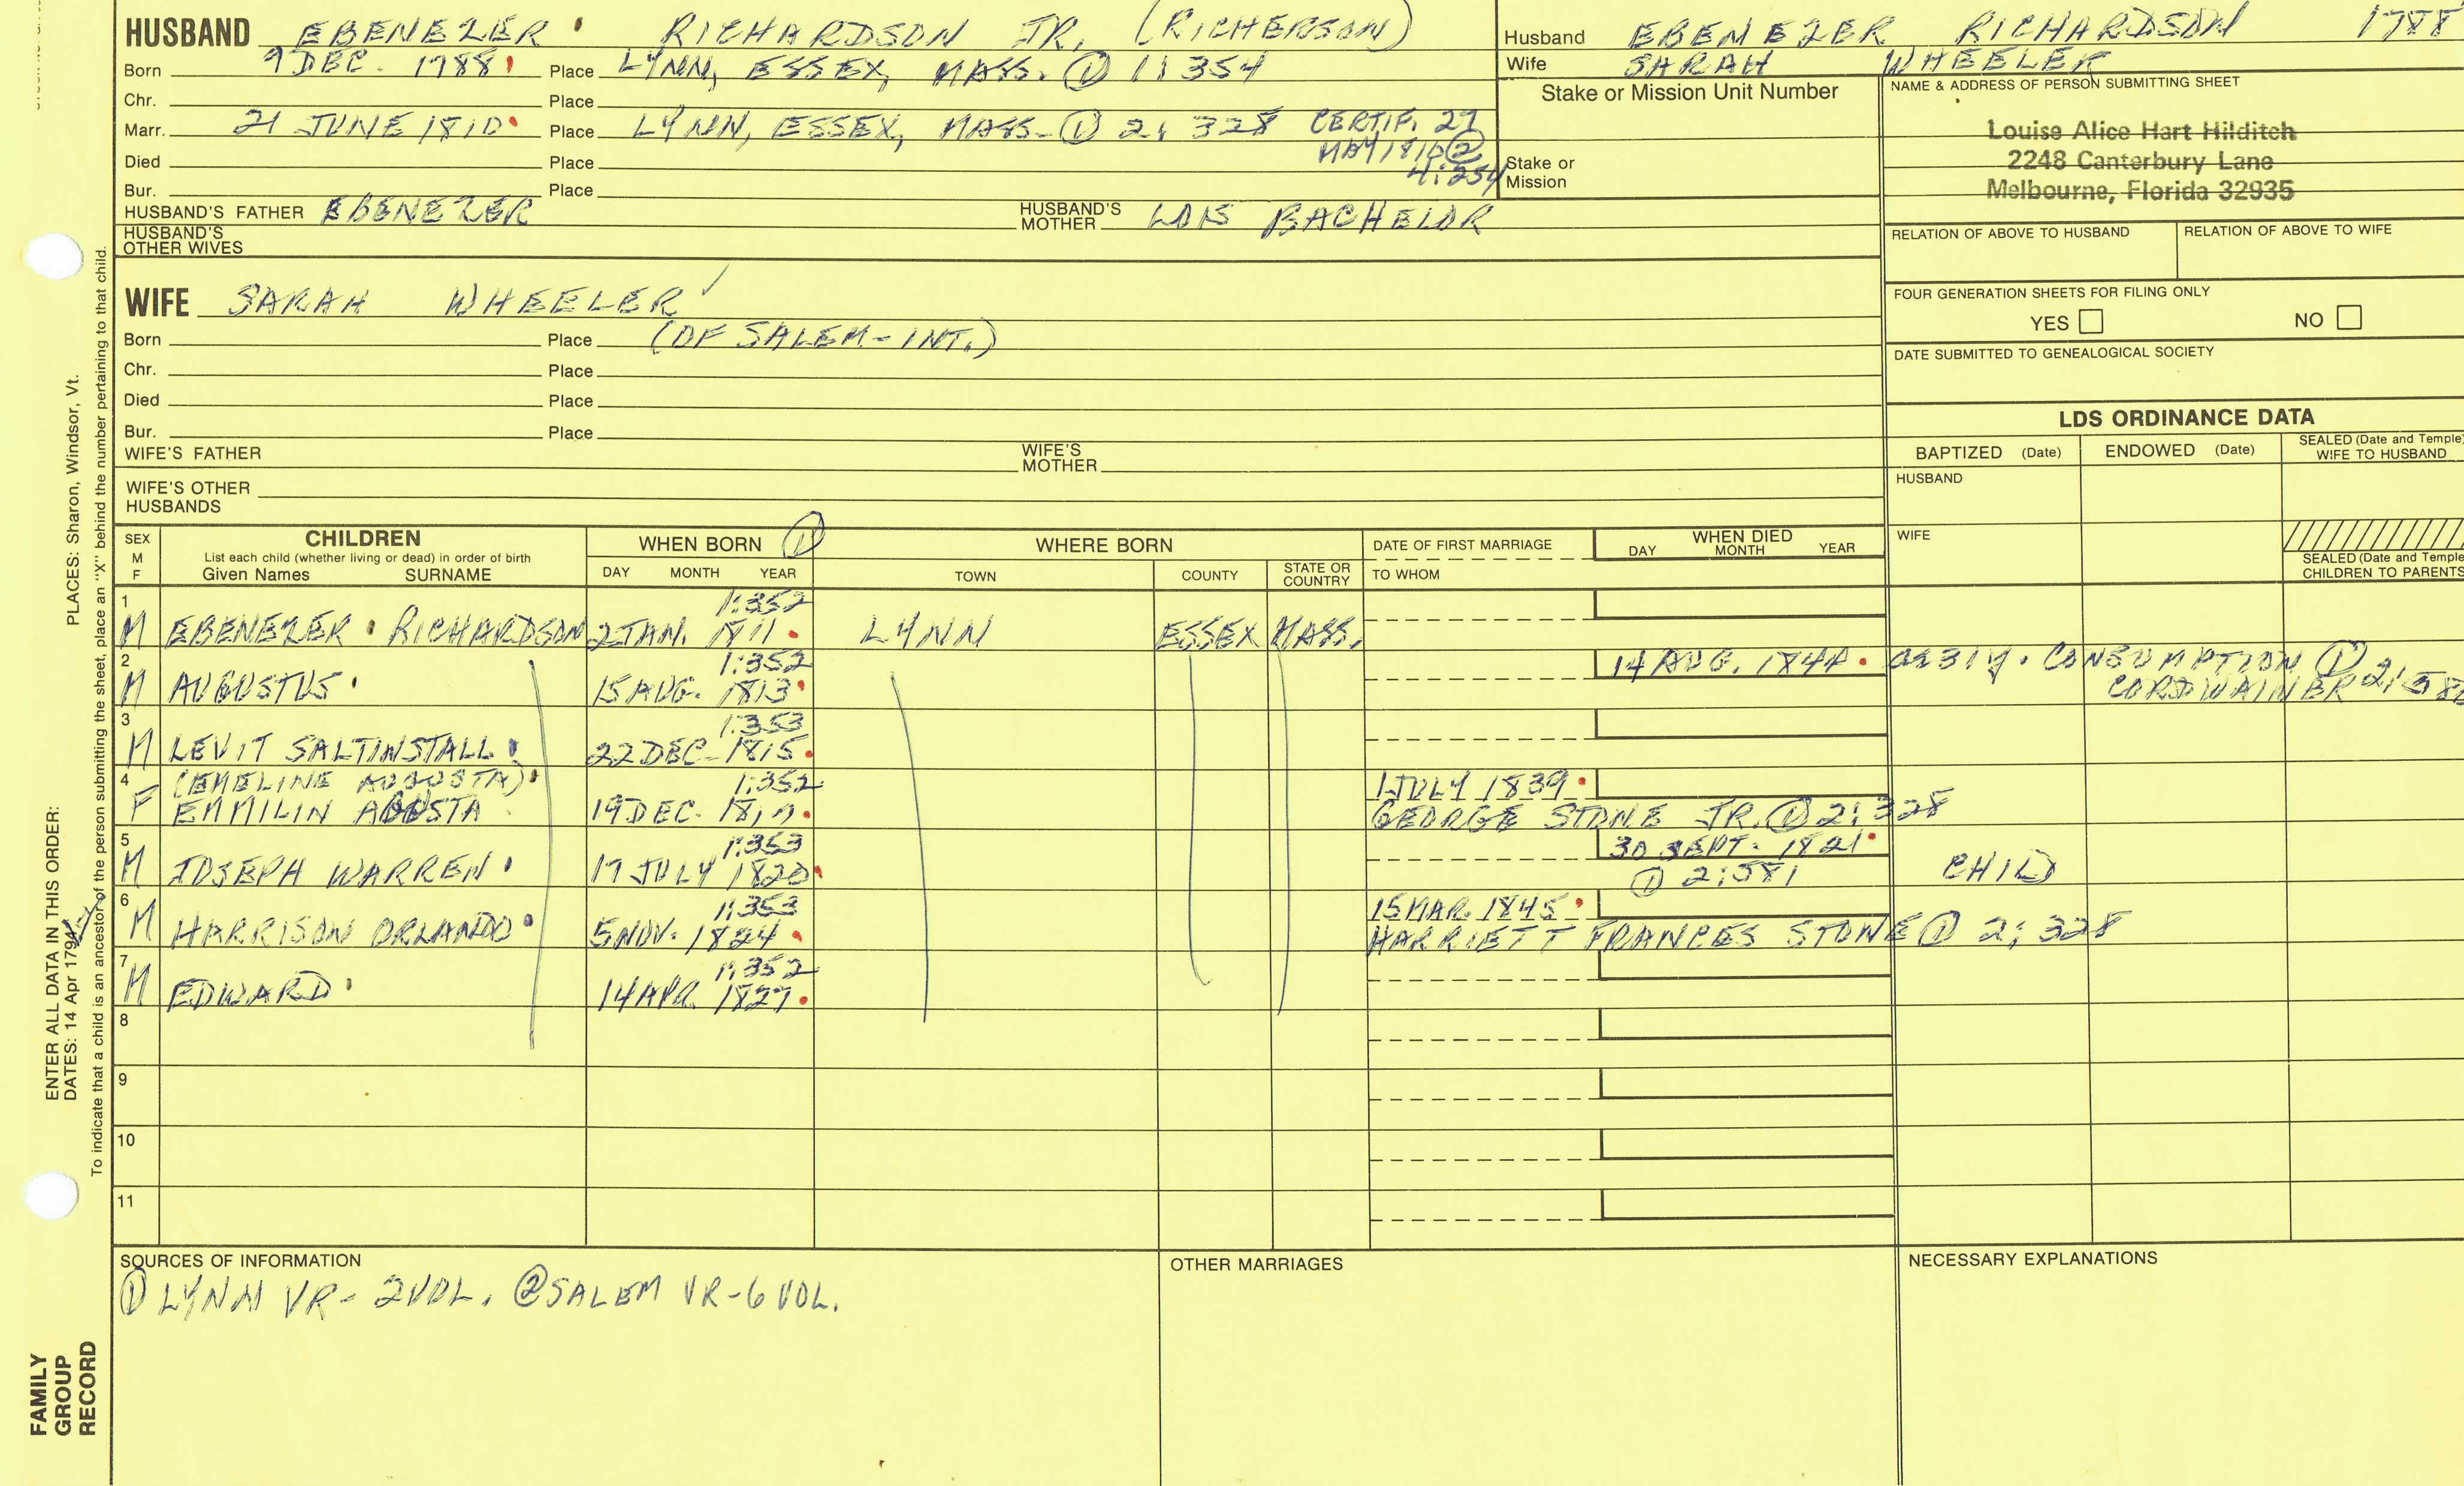 HUSBAND EBENEZER RICHARDSON JR. (RICHERSON)
Born 9 DEC. 1788 Place LYNN, ESSEX, MASS. ① 1:354
Chr. Place
Marr. 21 JUNE 1810 Place LYNN, ESSEX, MASS. ① 2:328 CERTIF. 27
MAY 1810 ②
4:254
Died Place
Bur. Place
HUSBAND'S FATHER EBENEZER HUSBAND'S MOTHER LOIS BACHELOR
HUSBAND'S OTHER WIVES
Husband EBENEZER RICHARDSON 1788
Wife SARAH WHEELER
Stake or Mission Unit Number
Stake or Mission
NAME & ADDRESS OF PERSON SUBMITTING SHEET
Louise Alice Hart Hilditch
2248 Canterbury Lane
Melbourne, Florida 32935
RELATION OF ABOVE TO HUSBAND RELATION OF ABOVE TO WIFE
FOUR GENERATION SHEETS FOR FILING ONLY
YES NO
DATE SUBMITTED TO GENEALOGICAL SOCIETY
WIFE SARAH WHEELER ✓
Born Place (OF SALEM-INT.)
Chr. Place
Died Place
Bur. Place
WIFE'S FATHER WIFE'S MOTHER
WIFE'S OTHER HUSBANDS
LDS ORDINANCE DATA
BAPTIZED (Date) ENDOWED (Date) SEALED (Date and Temple) WIFE TO HUSBAND
HUSBAND
WIFE
SEALED (Date and Temple)
CHILDREN TO PARENTS
SEX M F
CHILDREN
List each child (whether living or dead) in order of birth
Given Names SURNAME
WHEN BORN ①
DAY MONTH YEAR
WHERE BORN
TOWN COUNTY STATE OR COUNTRY
DATE OF FIRST MARRIAGE
TO WHOM
WHEN DIED
DAY MONTH YEAR
1 1:352
M EBENEZER RICHARDSON 2 JAN. 1811 LYNN ESSEX MASS.
2 1:352 14 AUG. 1844 ae 31y. CONSUMPTION ①
M AUGUSTUS 15 AUG. 1813 CORDWAINER
3 1:353
M LEVIT SALTINSTALL 22 DEC. 1815
4 (EMELINE AUGUSTA) 1:352 1 JULY 1839
F EMMILIN AGUSTA 19 DEC. GEORGE STONE JR. ① 2:328
5 1:353 30 SEPT. 1821
M JOSEPH WARREN 17 JULY 1820 ① 2:581 CHILD
6 1:353 15 MAR. 1845
M HARRISON ORLANDO 5 NOV. 1824 HARRIETT FRANCES STONE ① 2:328
7 1:352
M EDWARD 14 APR. 1827
8
9
10
11
SOURCES OF INFORMATION
① LYNN VR-2 VOL. ② SALEM VR-6 VOL.
OTHER MARRIAGES
NECESSARY EXPLANATIONS
PLACES: Sharon, Windsor, Vt.
ENTER ALL DATA IN THIS ORDER:
DATES: 14 Apr 1794
To indicate that a child is an ancestor of the person submitting the sheet, place an "X" behind the number pertaining to that child.
FAMILY
GROUP
RECORD